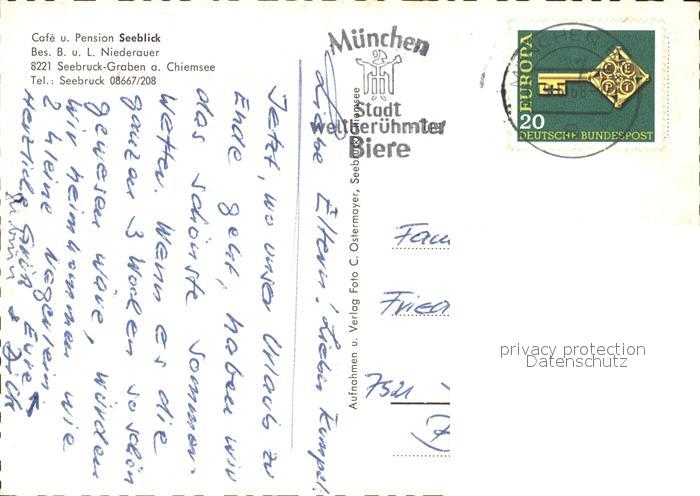 Café u. Pension Seeblick
Bes. B. u. L. Niederauer
8221 Seebruck-Graben a. Chiemsee
Tel.: Seebruck 08667/208
München
Stadt
weltberühmter
Biere
EUROPA
CEPT
20
DEUTSCHE BUNDESPOST
MÜNCHEN
Liebe Eltern! Lieber Kumpel!
Jetzt, wo unser Urlaub zu
Ende geht, haben wir
das schönste Sommer-
wetter. Wenn es die
ganzen 3 Wochen so schön
gewesen wäre, würden
wir heimkommen wie
2 kleine Negerlein.
Herzliche Grüße Eure
& Dick
Aufnahmen u. Verlag Foto C. Ostermayer, Seebruck/Chiemsee
Fam
Fried
7521
privacy protection
Datenschutz